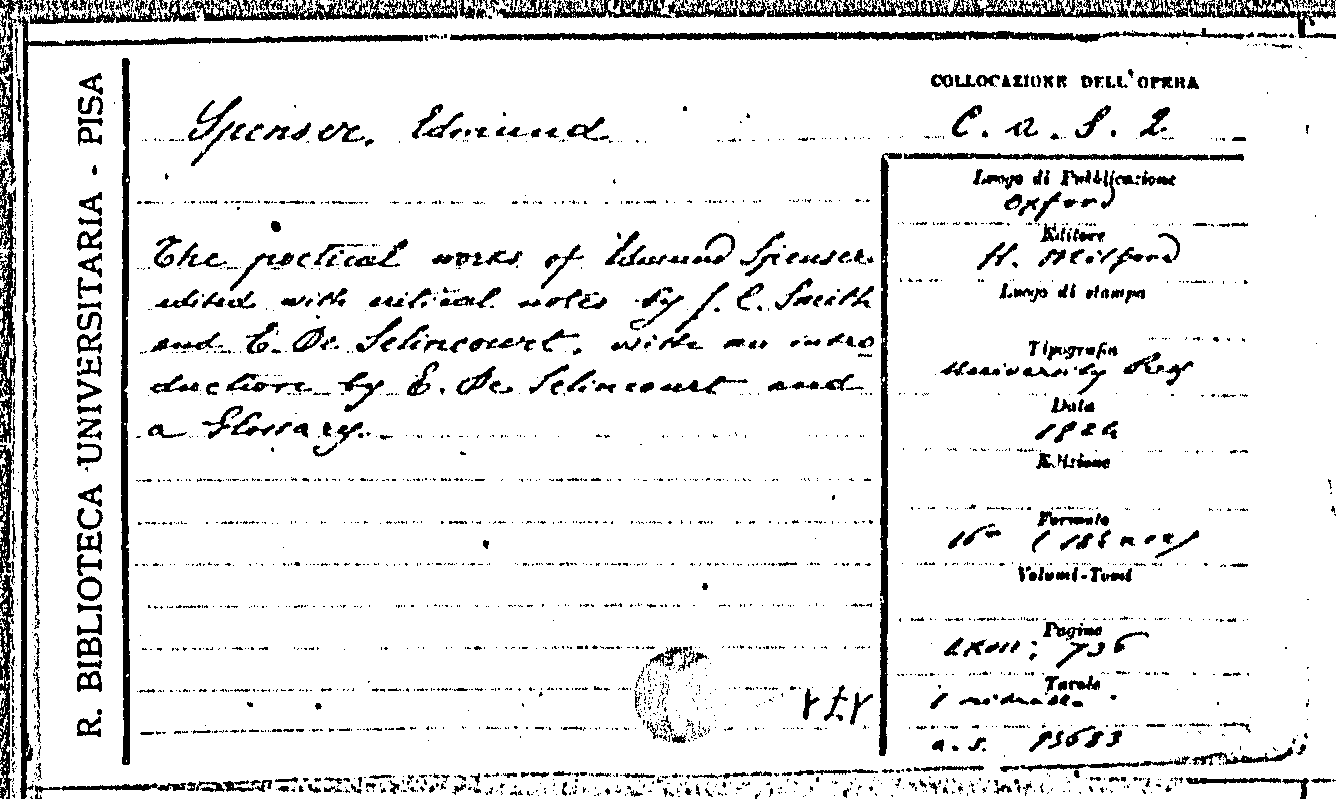 R. BIBLIOTECA UNIVERSITARIA - PISA
COLLOCAZIONE DELL'OPERA
Spenser, Edmund
C. a. S. 2
The poetical works of Edmund Spenser
edited with critical notes by J. C. Smith
and E. De Selincourt, with an intro
duction by E. De Selincourt and
a Glossary.
Luogo di Pubblicazione
Oxford
Editore
H. Milford
Luogo di stampa
Tipografia
University Press
Data
Edizione
Formato
16°
Volumi-Tomi
Pagine
736
Tavole